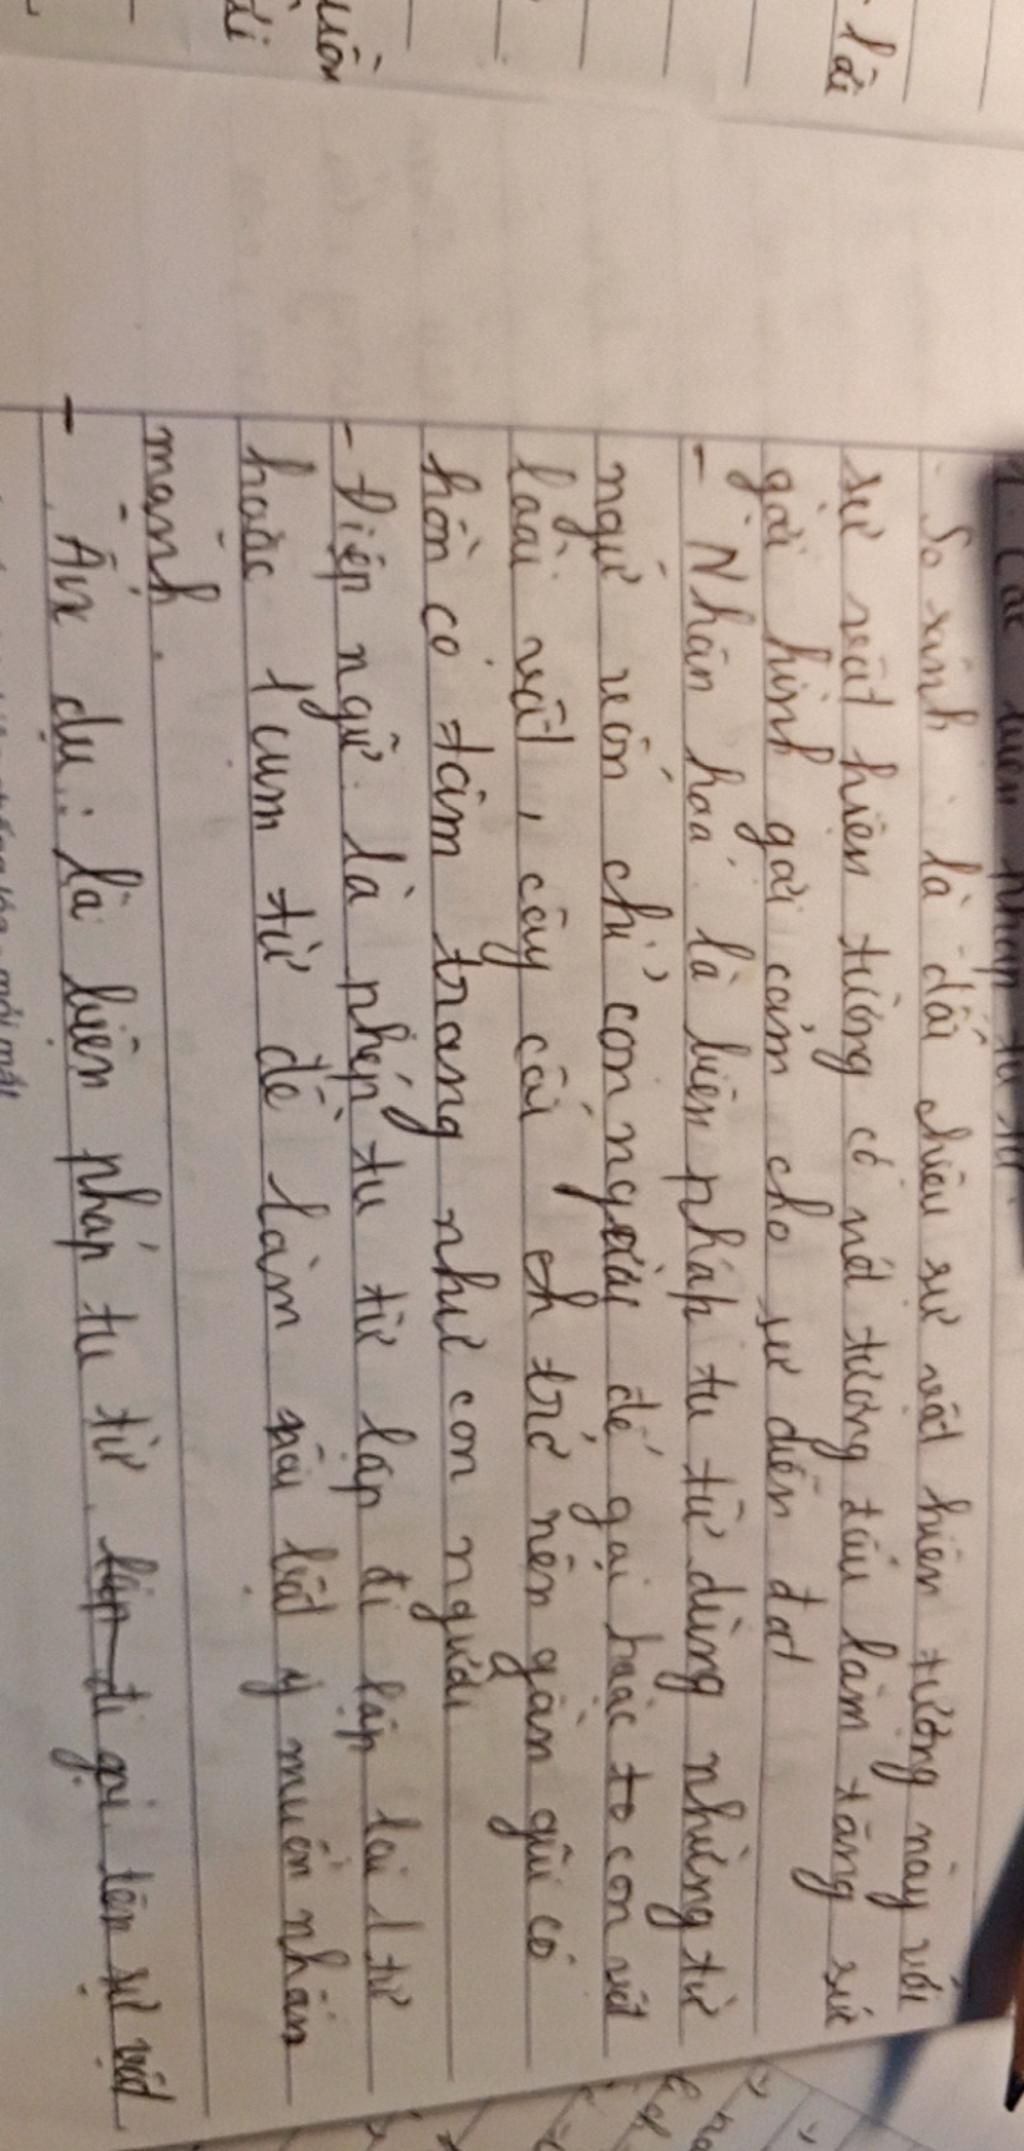 biện pháp tu từ
So sánh : là đối chiếu sự vật hiện tượng này với
sự vật hiện tượng có nét tương đồng làm tăng sức
gợi hình gợi cảm cho sự diễn đạt
- Nhân hoá : là biện pháp tu từ dùng những từ
ngữ vốn chỉ con người để gọi hoặc tả con vật
loài vật, cây cối trở nên gần gũi có
hồn có tâm trạng như con người
- Điệp ngữ : là phép tu từ lặp đi lặp lại 1 từ
hoặc 1 cụm từ để làm nổi bật ý muốn nhấn
mạnh.
- Ẩn dụ : là biện pháp tu từ lặp đi gọi tên sự vật